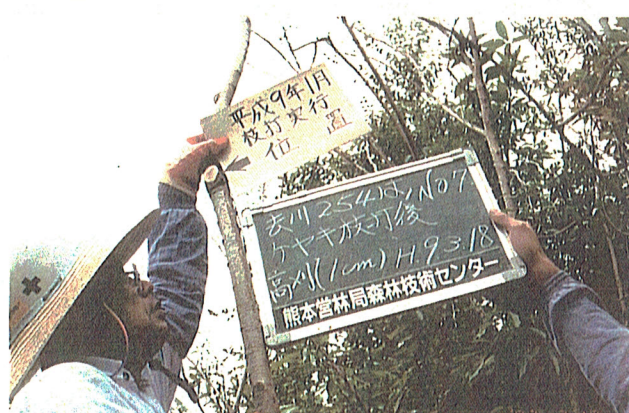 平成9年1月
枝打実行
位置
去川254は, No7
ケヤキ枝打後
高刈(1cm) H.9.3.18
熊本営林局森林技術センター